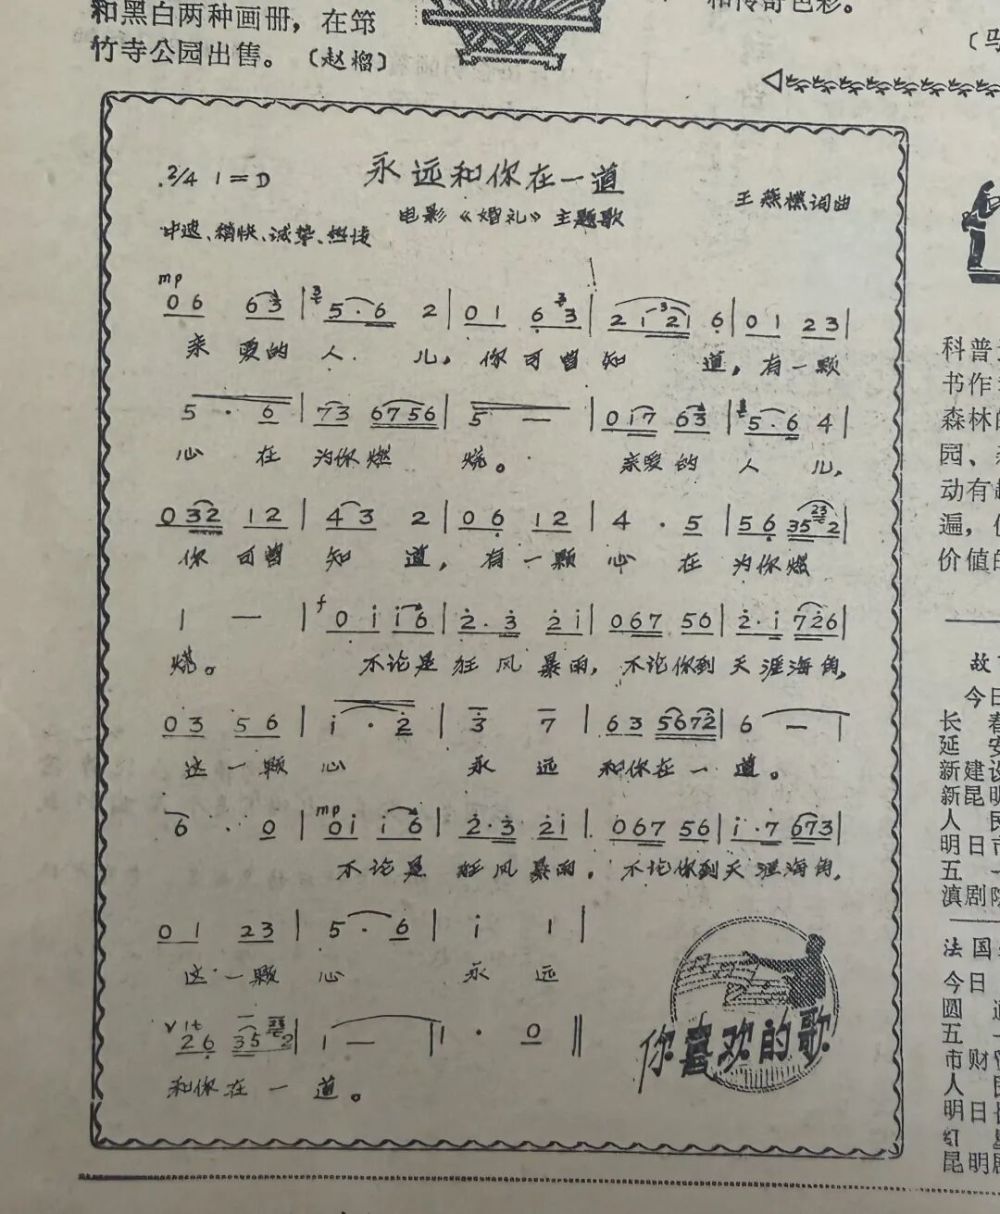 和黑白两种画册，在筇
竹寺公园出售。〔赵榴〕
和传奇色彩。
〔马
永远和你在一道
2/4 1=D
电影《婚礼》主题歌
王燕樵词曲
中速、稍快、诚挚、热情
mp
0 6 6 3 | 5 · 6 2 | 0 1 6 3 | 2 i 2 i 6 | 0 1 2 3 |
亲爱的人儿，你可曾知道，有一颗
5 · 6 | 7 3 6 7 5 6 | 5 — | 0 i 7 6 3 | 5 · 6 4 |
心在为你燃烧。亲爱的人儿，
0 3 2 1 2 | 4 3 2 | 0 6 1 2 | 4 · 5 | 5 6 3 5 2 |
你可曾知道，有一颗心在为你燃
1 — | f 0 i i 6 | 2 · 3 2 i | 0 6 7 5 6 | 2 · i 7 2 6 |
烧。不论是狂风暴雨，不论你到天涯海角，
0 3 5 6 | i · 2 | 3 7 | 6 3 5 6 7 2 | 6 — |
这一颗心永远和你在一道。
6 · 0 | mp 0 i i 6 | 2 · 3 2 i | 0 6 7 5 6 | i · 7 6 7 3 |
不论是狂风暴雨，不论你到天涯海角，
0 1 2 3 | 5 · 6 | i 1 |
这一颗心永远
2 6 3 5 2 | 1 — | 1 · 0 ‖
和你在一道。
你喜欢的歌
科普
书作
森林的
园、
动有
遍，
价值的
故
今日
长春
延安
新建设
新昆明
人民
明日市
五一
滇剧院
法国
今日
圆通
五一
市财贸
人民
明日长
红
昆明剧